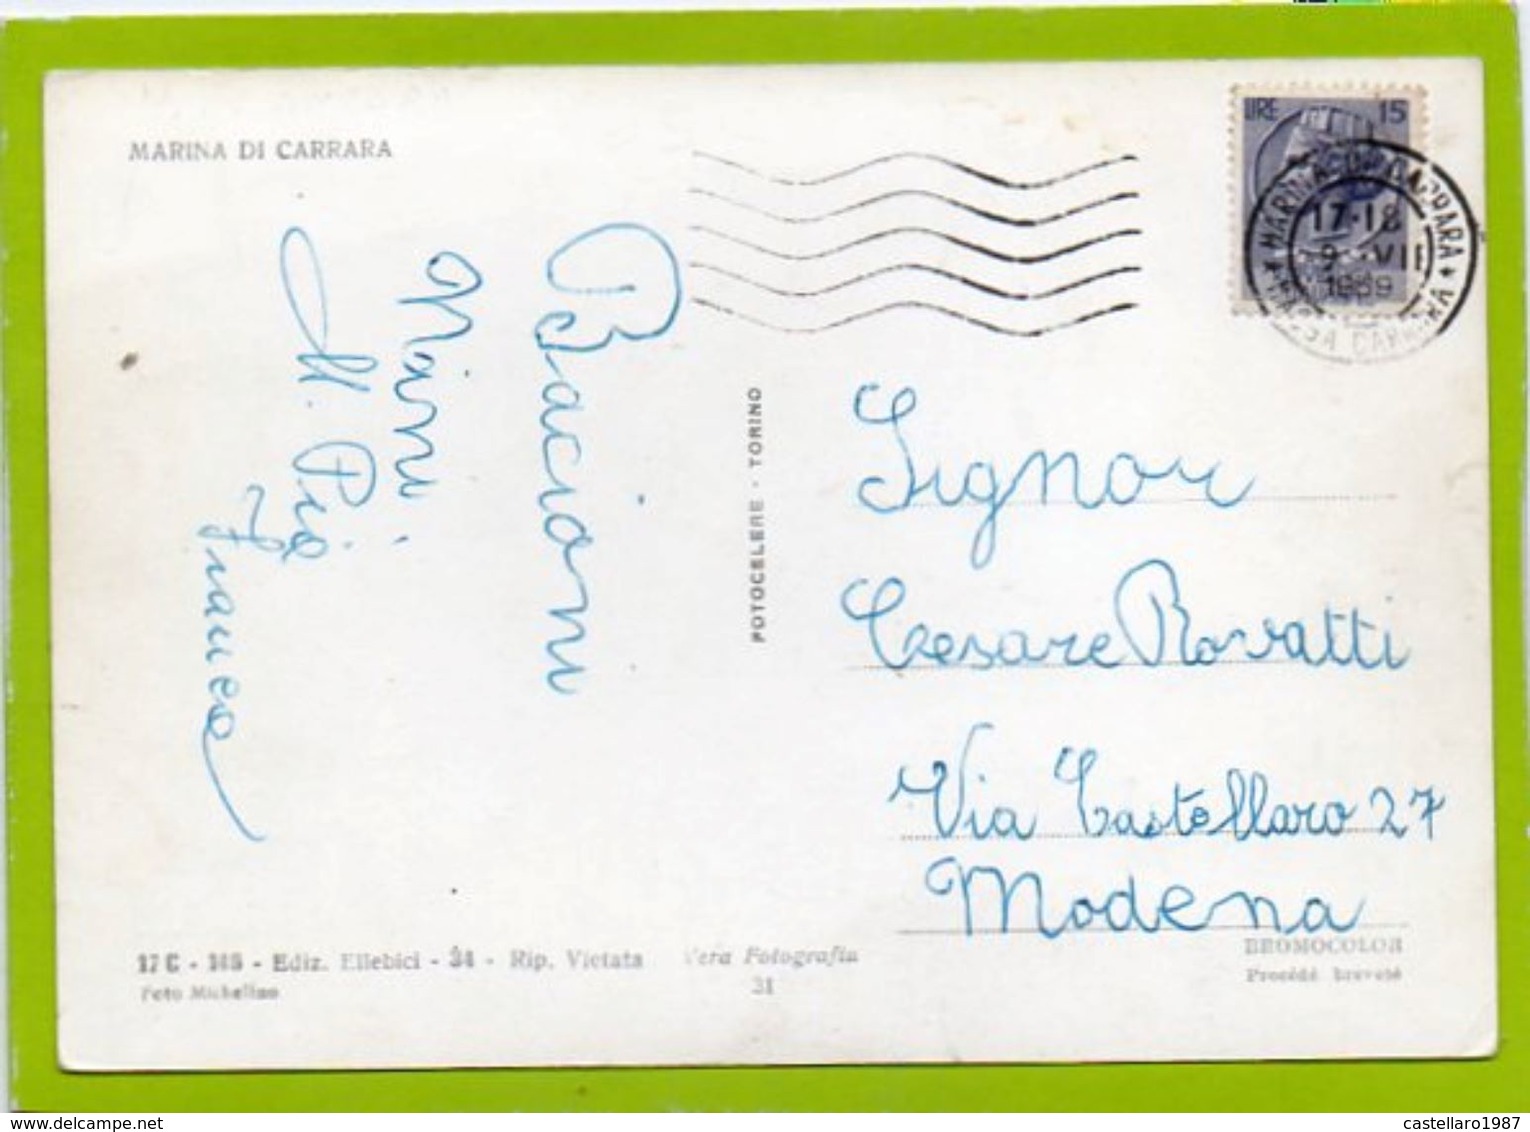 MARINA DI CARRARA
LIRE 15
MARINA DI CARRARA
17-18
9 VII
1959
MASSA CARRARA
Bacioni
Ninni
M. Pia
Franco
FOTOCELERE - TORINO
Signor
Cesare Rovatti
Via Castellaro 27
Modena
17 C - 145 - Ediz. Ellebici - 34 - Rip. Vietata Vera Fotografia
Foto Michelino
31
BROMOCOLOR
Procédé breveté
castellaro1987
www.delcampe.net